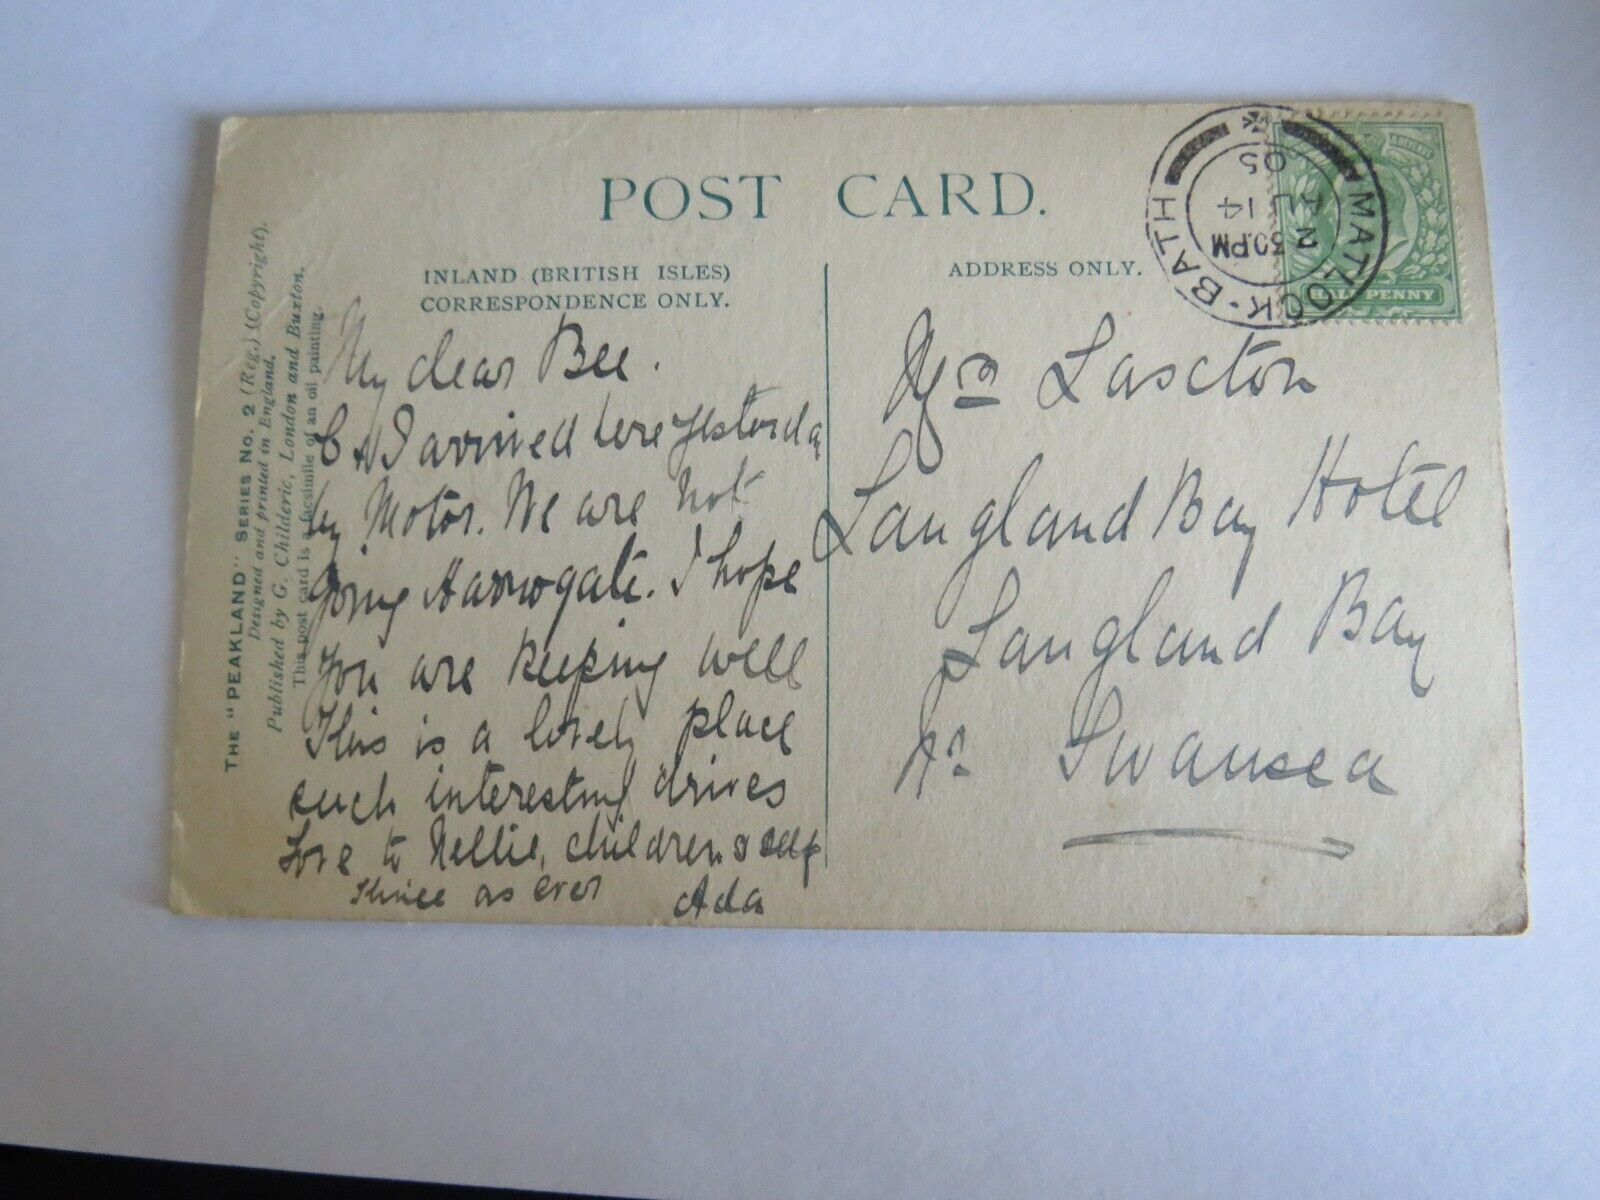 POST CARD.
INLAND (BRITISH ISLES)
CORRESPONDENCE ONLY.
ADDRESS ONLY.
THE "PEAKLAND" SERIES No. 2 (Reg.) (Copyright).
Designed and printed in England.
Published by G. Childeric, London and Buxton.
This post card is a facsimile of an oil painting.
My dear Bee.
I arrived here yesterda
by Motor. We are not
going Harrogate. I hope
you are keeping well
This is a lovely place
such interesting drives
Love to Nellie, children & self
Thine as ever
Ada
Mrs Lascton
Langland Bay Hotel
Langland Bay
Nr Swansea
MATLOCK·BATH
2 30PM
JL 14
05
HALFPENNY